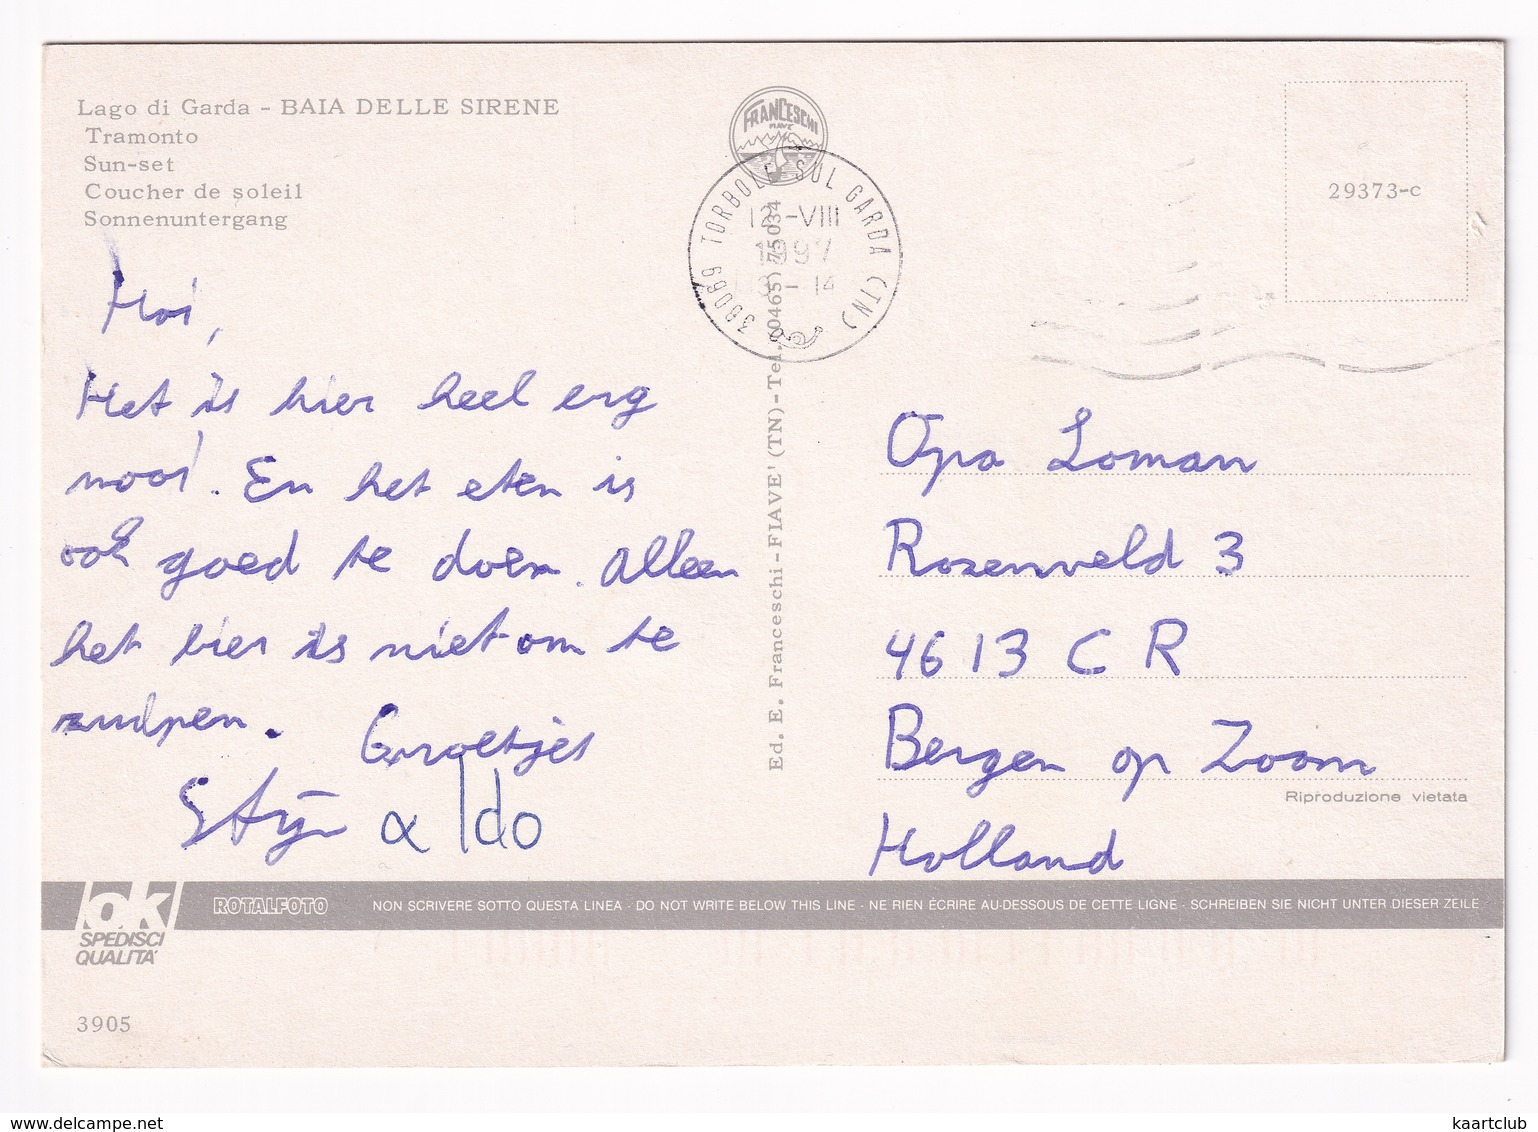 Lago di Garda - BAIA DELLE SIRENE
Tramonto
Sun-set
Coucher de soleil
Sonnenuntergang
FRANCESCHI
FIAVE
38069 TORBOLE SUL GARDA (TN)
12-VIII
1997
- 14
29373-c
Hoi,
Het is hier heel erg
mooi. En het eten is
ook goed te doen. Alleen
het bier is niet om te
zuipen. Groetjes
Stijn & Ido
Ed. E. Franceschi - FIAVE' (TN) - Tel. (0465) 75034
Opa Loman
Rozenveld 3
4613 CR
Bergen op Zoom
Riproduzione vietata
Holland
ok
SPEDISCI
QUALITA'
ROTALFOTO
NON SCRIVERE SOTTO QUESTA LINEA · DO NOT WRITE BELOW THIS LINE · NE RIEN ÉCRIRE AU-DESSOUS DE CETTE LIGNE · SCHREIBEN SIE NICHT UNTER DIESER ZEILE
3905
www.delcampe.net
kaartclub